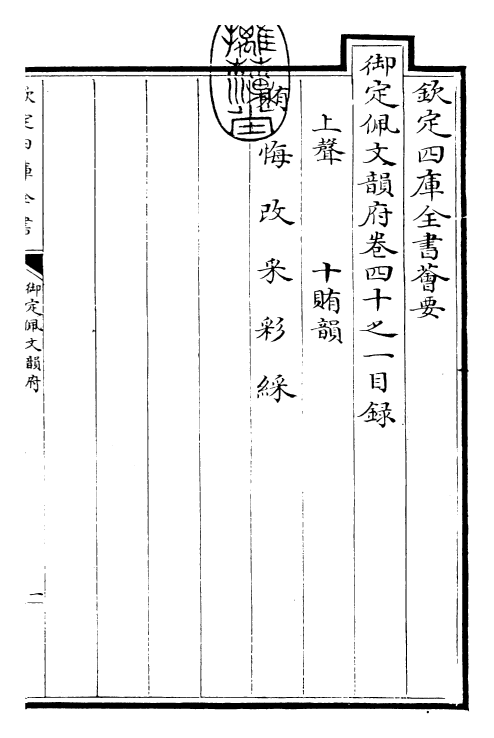 欽定四庫全書薈要
御定佩文韻府卷四十之一目録
上聲　十賄韻
賄悔改采彩綵
欽定四庫全書
御定佩文韻府
一